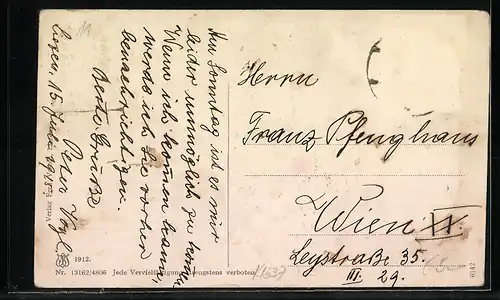 Am Sonntag ist es mir
leider unmöglich zu kommen.
Wenn ich kommen kann,
werde ich Sie vorher
benachrichtigen.
Beste Grüße
Peter Vogl
Wien, 15.
Herrn
Franz Pfenghaus
Wien XX.
Leystraße 35.
III 29.
1912.
Nr. 13162/4806 Jede Vervielfältigung strengstens verboten
1637
6142